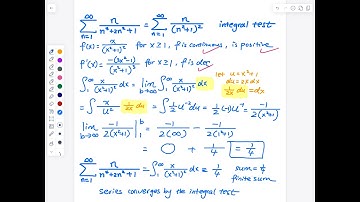 ∞∑n=1 n/(n⁴+2n²+1) = ∞∑n=1 n/(n²+1)² integral test
f(x) = x/(x²+1)² for x≥1, f is continuous, is positive
f'(x) = -(3x²-1)/(x²+1)³ for x≥1, f is dec
∫₁^∞ x/(x²+1)² dx = lim b→∞ ∫₁^b x/(x²+1)² dx let u = x²+1
du = 2x dx
= ∫ x/u² · 1/2x du = ∫ 1/2 u⁻² du = 1/2 (-1)u⁻¹ = -1/2(x²+1) 1/2x du = dx
lim b→∞ -1/2(x²+1) |₁^b = -1/2(∞) - -1/2(1²+1)
= 0 + 1/4 = 1/4
∞∑n=1 n/(n⁴+2n²+1) = ∫₁^∞ x/(x²+1)² dx = 1/4 sum = 1/4
finite sum
series converges by the integral test